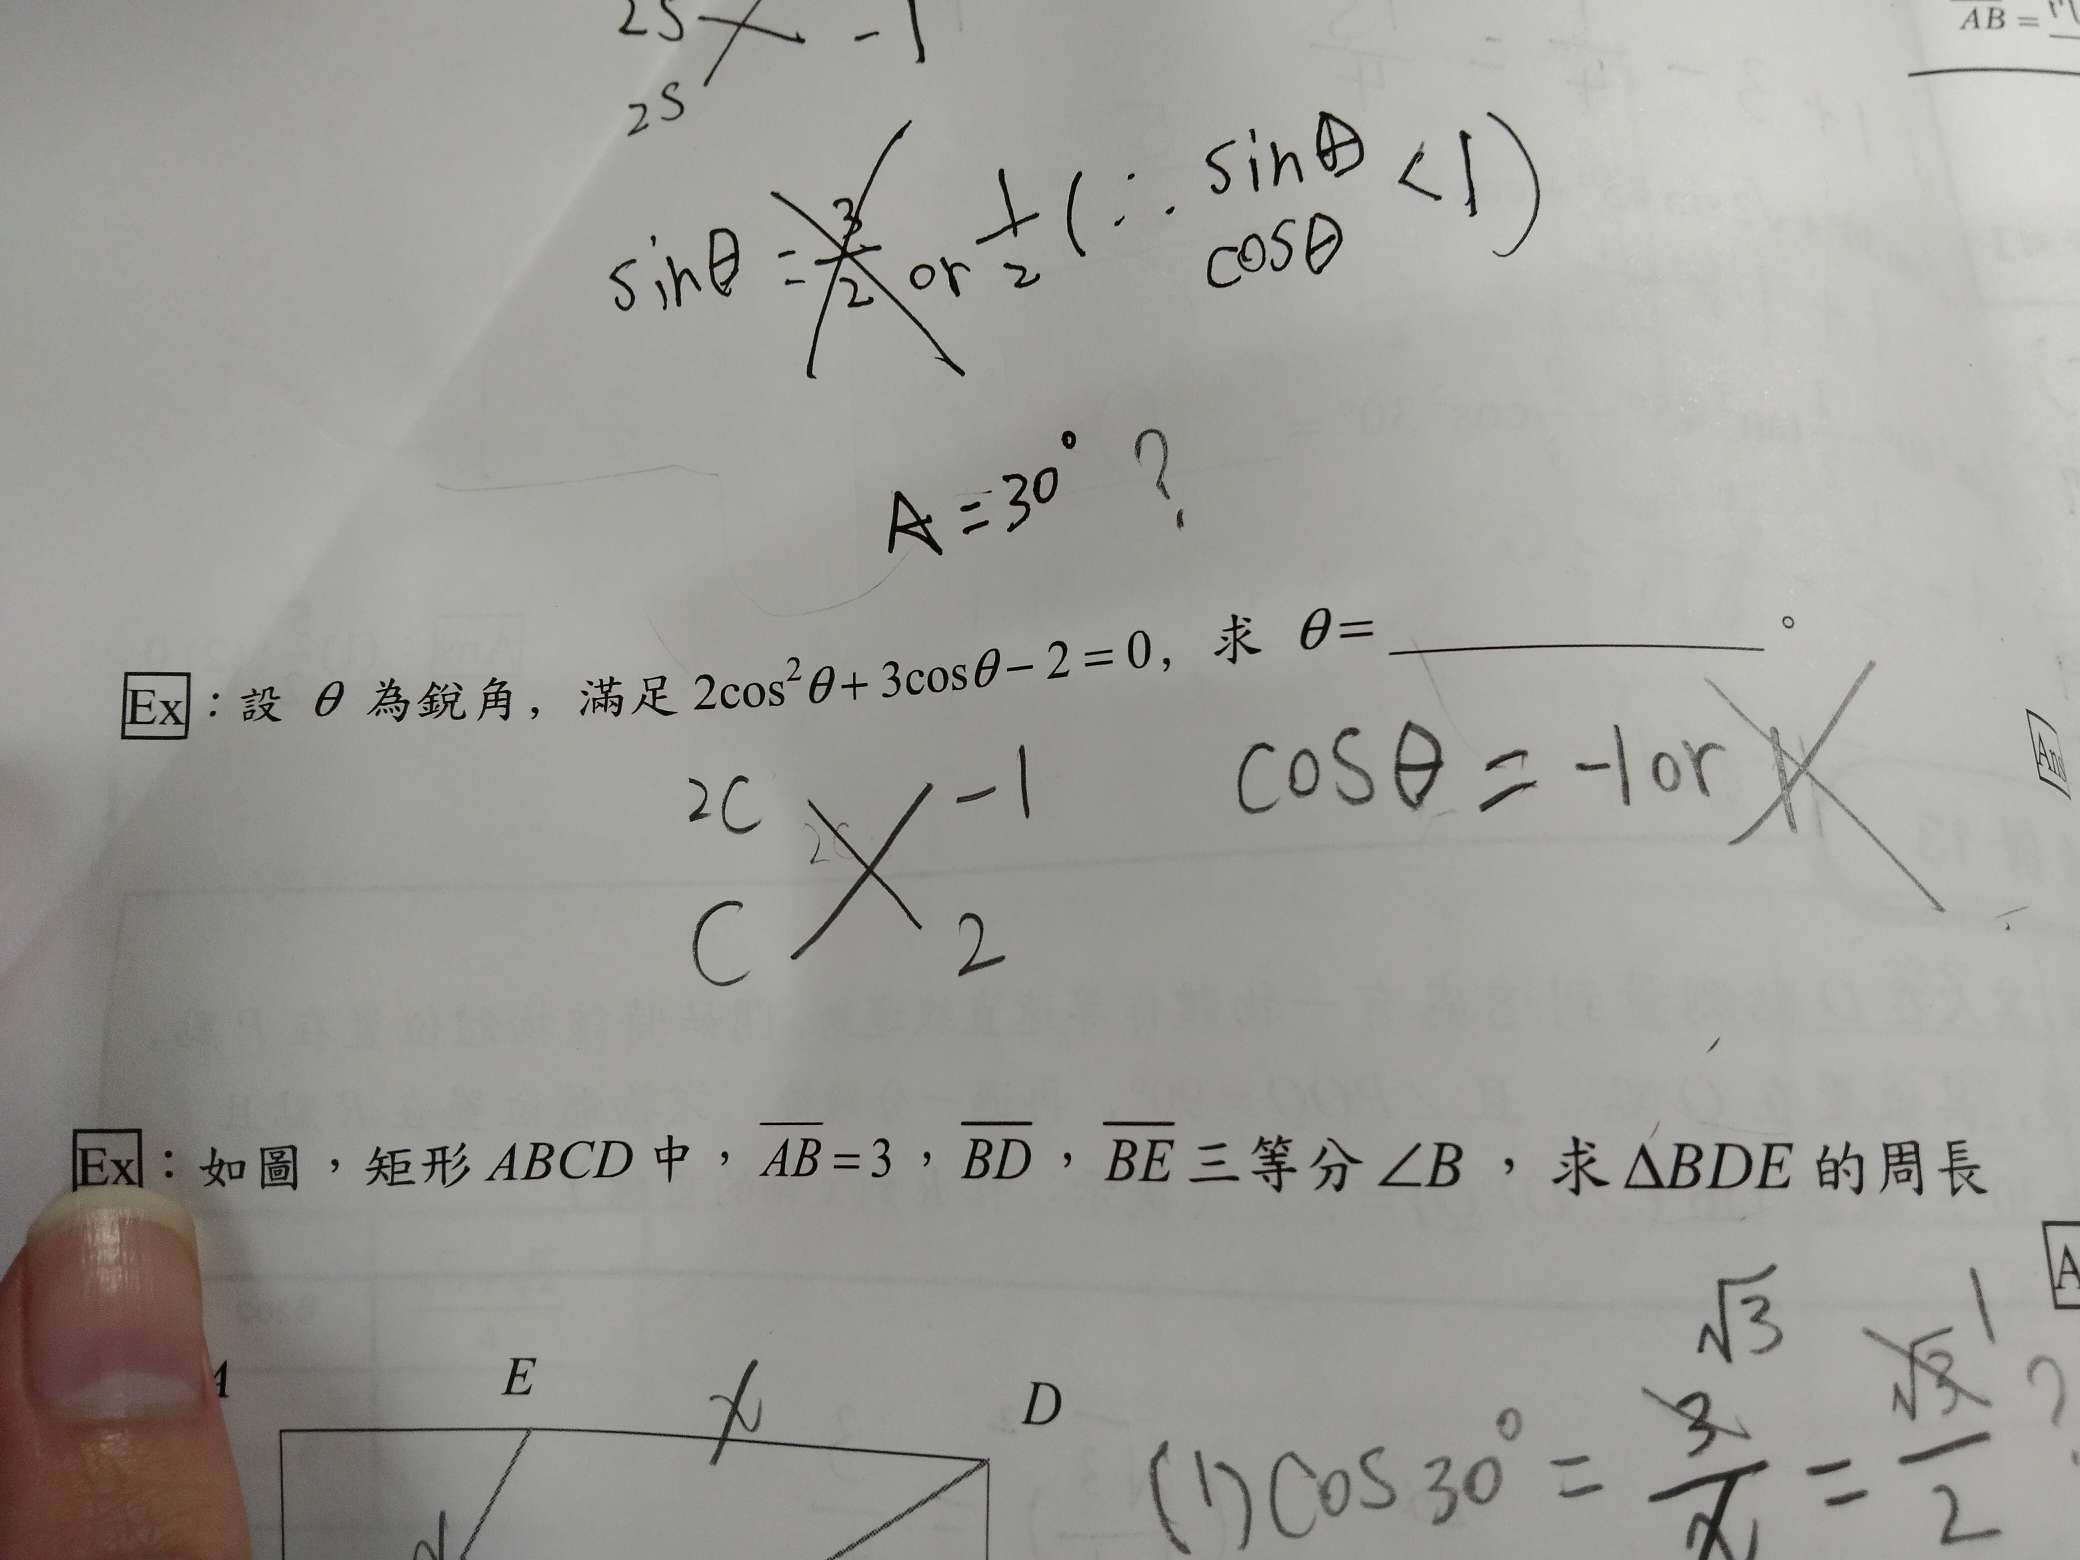 2S -1
2S
AB =
sinθ = 3/2 or 1/2 (∵ sinθ cosθ < 1)
A = 30° ?
Ex：設 θ 為銳角，滿足 2cos²θ+3cosθ−2=0，求 θ=＿＿＿＿。
2C -1
C 2
cosθ = -1 or 1
Ex：如圖，矩形 ABCD 中，AB=3，BD，BE 三等分∠B，求 ΔBDE 的周長
E x D
(1) cos30° = 3/x = √3/2 ?
√3 1